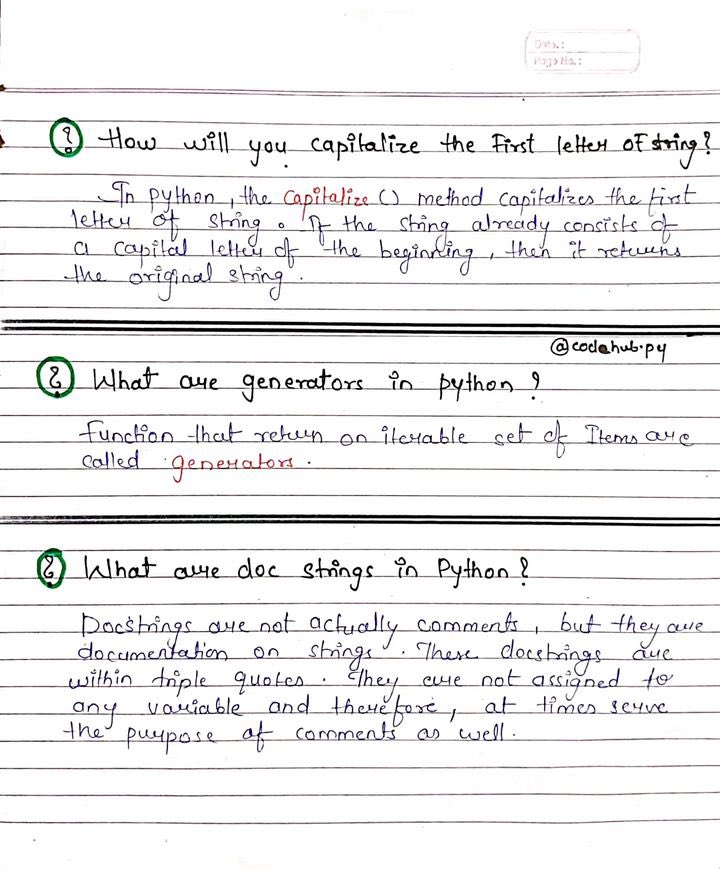 Date.:
Page No.:
? How will you capitalize the First letter of string?
In python, the capitalize () method capitalizes the first
letter of string. If the string already consists of
a capital letter of the beginning, then it returns
the original string.
@codehub.py
? What are generators in python?
function that return on iterable set of Items are
called generators.
? What are doc strings in Python?
Docstrings are not actually comments, but they are
documentation on strings. These docstrings are
within triple quotes. They are not assigned to
any variable and therefore, at times serve
the purpose of comments as well.